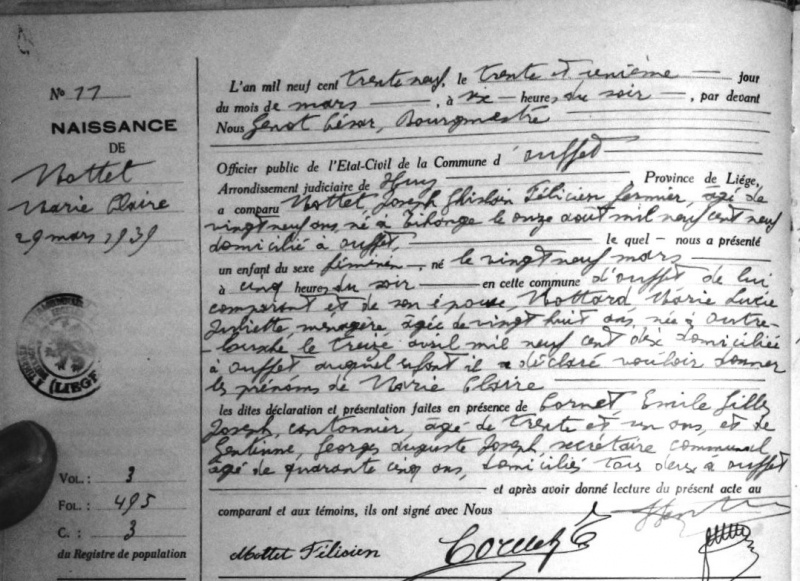 N° 11
NAISSANCE
DE
Mottet
Marie Claire
29 mars 1939
(LIEGE)
VOL.: 3
FOL.: 495
C.: 3
du Registre de population
L'an mil neuf cent trente neuf, le trente et unième jour
du mois de mars, à six heures du soir, par devant
Nous Genot César, Bourgmestre
Officier public de l'Etat-Civil de la Commune d'ouffet
Arrondissement judiciaire de Huy Province de Liége,
a comparu Mottet Joseph Ghislain Félicien fermier, âgé de
vingt neuf ans, né à le onze aout mil neuf cent neuf
domicilié à ouffet le quel nous a présenté
un enfant du sexe féminin, né le vingt neuf mars
à cinq heures du soir en cette commune d'ouffet de lui
comparant et de son épouse, Mottard Marie Lucie
Juliette, ménagère, âgée de vingt huit ans, née à outre-
-louxhe le treize avril mil neuf cent dix domiciliée
à ouffet auquel enfant il a déclaré vouloir donner
les prénoms de Marie Claire
les dites déclaration et présentation faites en présence de Cornet, Emile Gilles
Joseph, cantonnier, âgé de trente et un ans, et de
Georges Auguste Joseph, secrétaire communal
âgé de quarante cinq ans, domiciliés tous deux à ouffet
et après avoir donné lecture du présent acte au
comparant et aux témoins, ils ont signé avec Nous
Mottet Félicien Cornet E